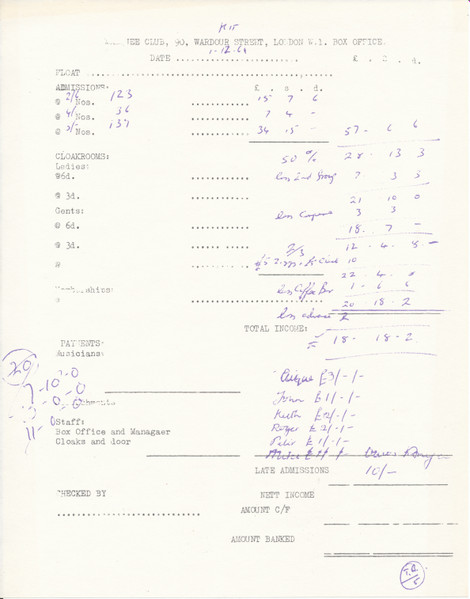 CLUB, 90, WARDOUR STREET, LONDON W.1. BOX OFFICE.
DATE 1-12-64 £ . s . d.
FLOAT
ADMISSIONS: £ . s . d.
@ 2/6 Nos. 123 15 7 6
@ 4/- Nos. 36 7 4 -
@ 5/- Nos. 139 34 15 - 57 - 6 6
CLOAKROOMS: 50 % 28 . 13 3
Ladies:
@6d. 7 3 3
@ 3d. 21 10 0
Gents: 3 3
@ 6d. 18 . 7 -
@ 3d. 2/3 12 - 4 . 8 -
@ 10
22 4 . 8
less Coffee Bar 1 - 6 6
@ 20 18 - 2
less advance 2
TOTAL INCOME: 18 - 18 - 2
PAYMENTS:
Musicians:
20 - 0
£3/-/-
John £1/-/-
Keith £2/-/-
Roger £2/-/-
Peter £1/-/-
Staff:
Box Office and Managaer
Cloaks and door
LATE ADMISSIONS 10/-
CHECKED BY NETT INCOME
AMOUNT C/F
AMOUNT BANKED